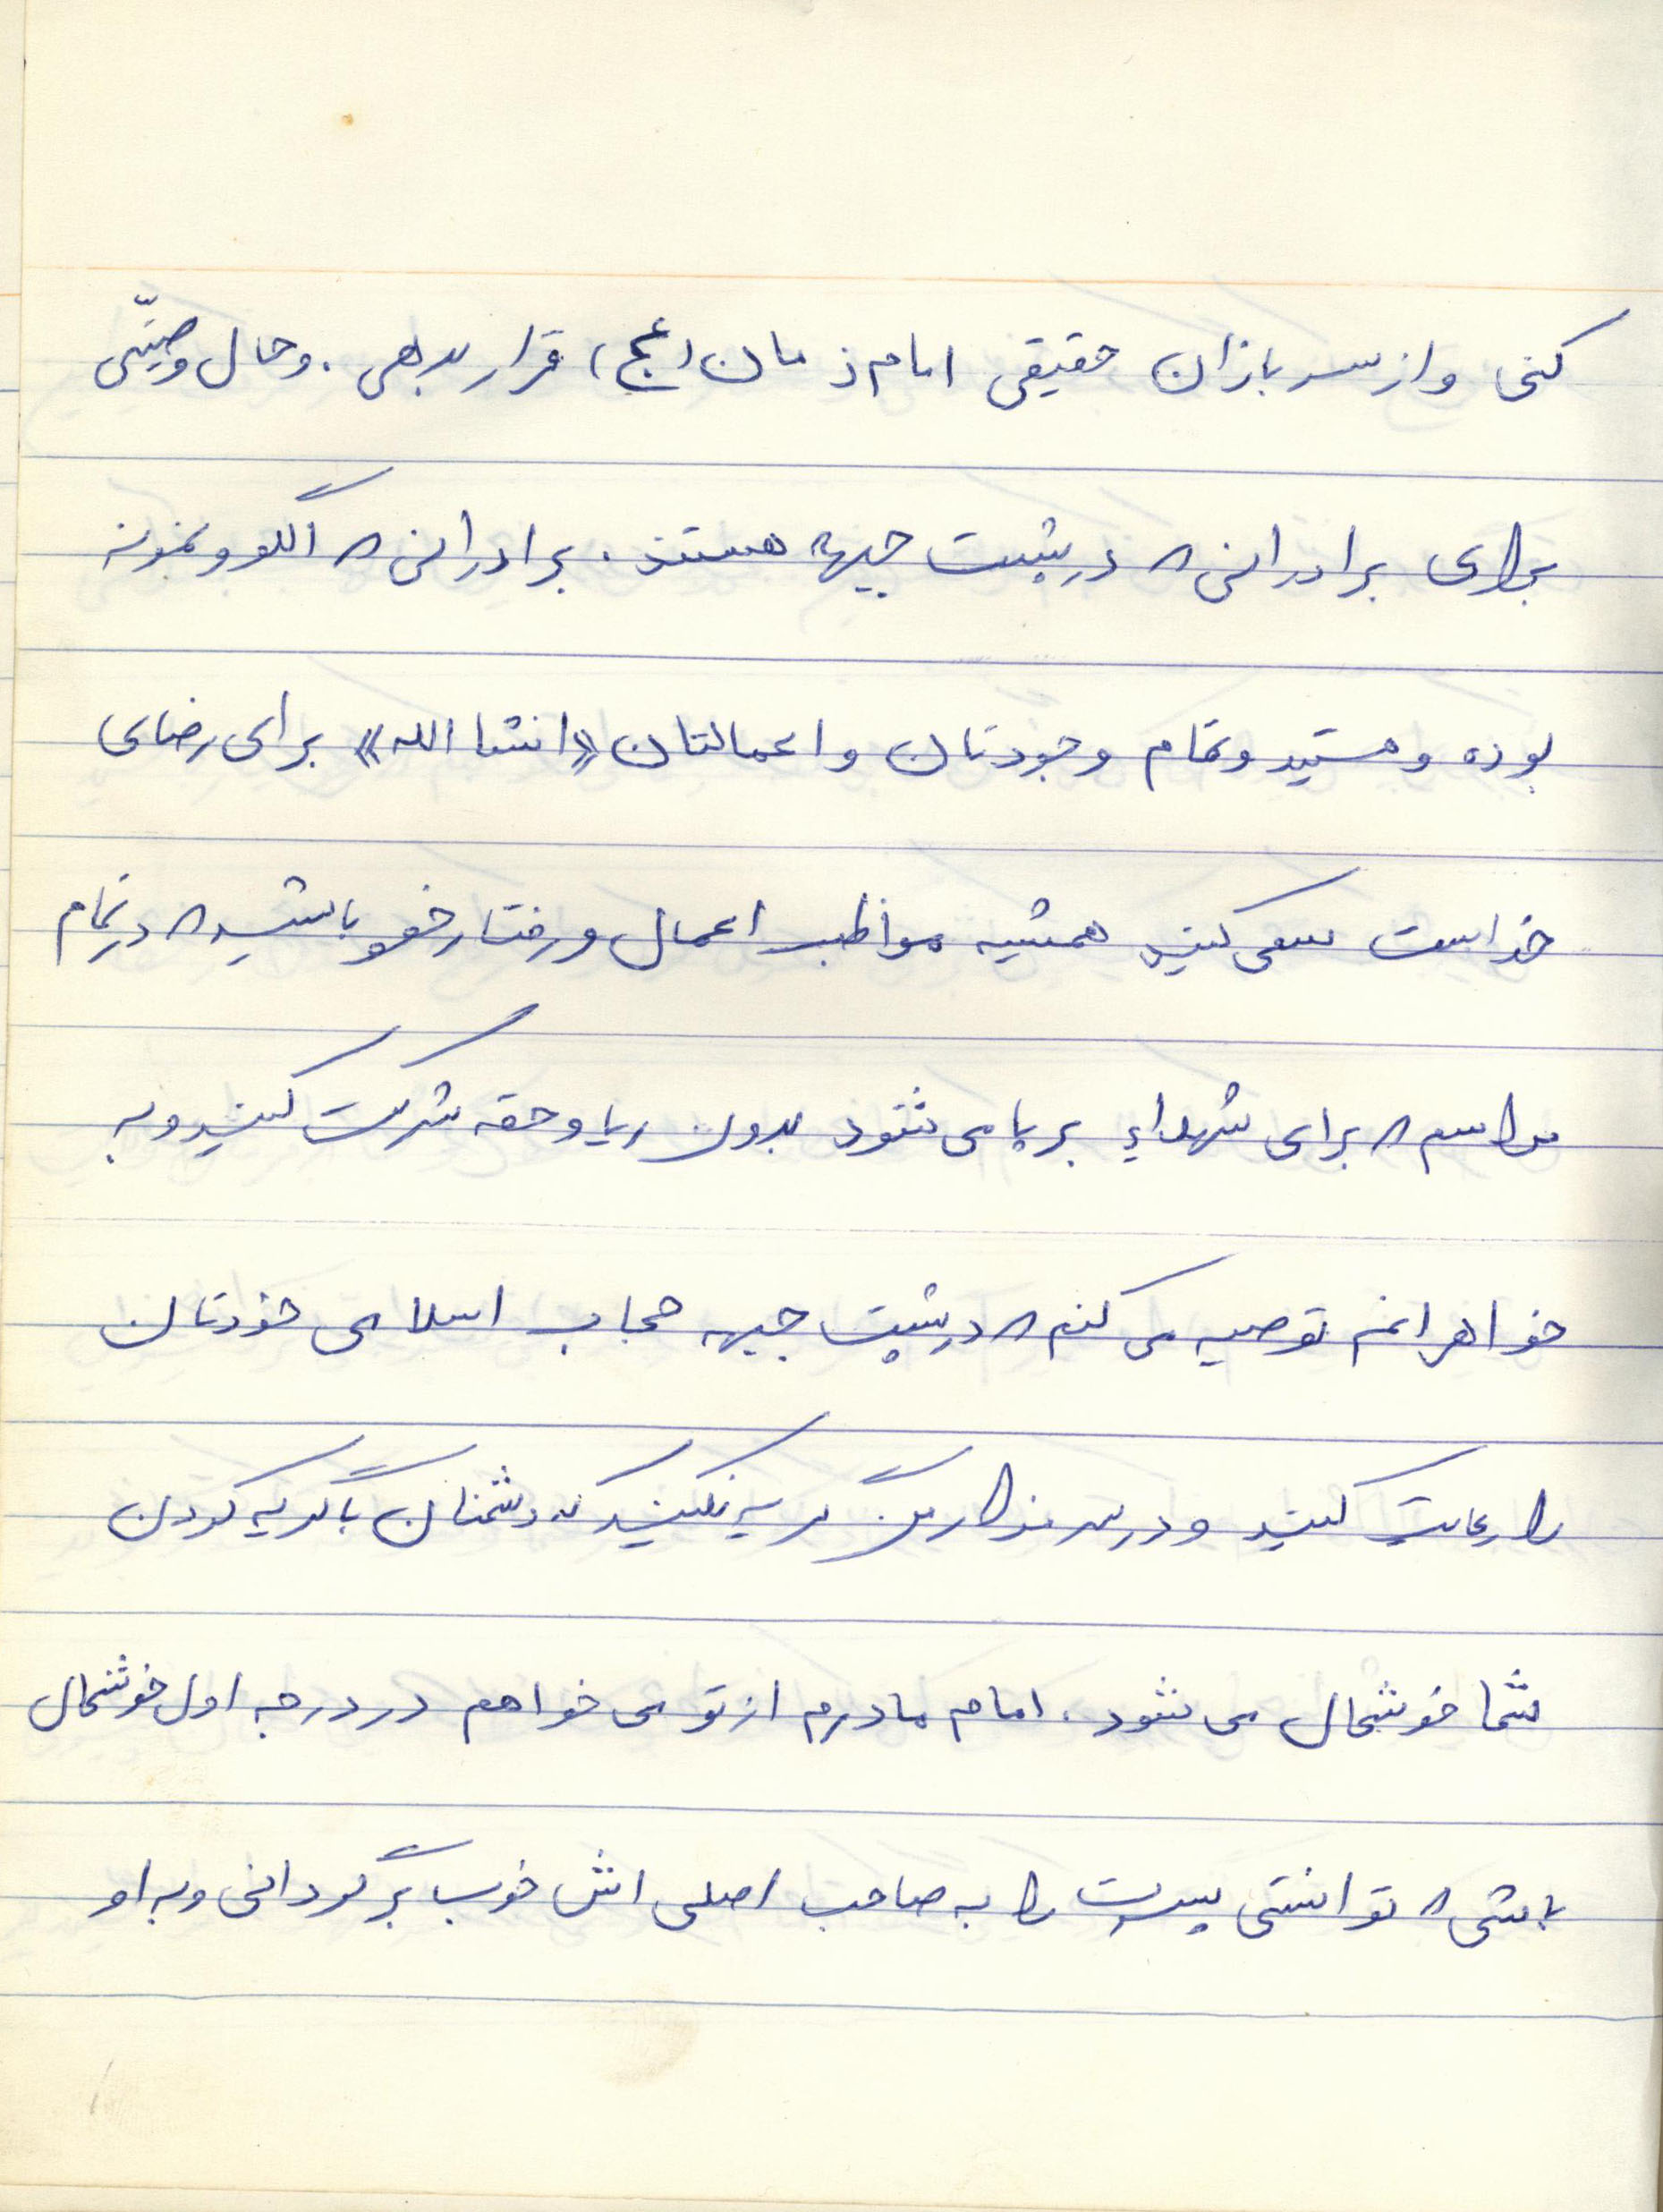 کنی و از سربازان حقیقی امام زمان (عج) قرار بدهی . و حال وصیّتی
برای برادرانی که در پشت جبهه هستند . برادرانی که الگو و نمونه
بوده و هستید و تمام وجودتان و اعمالتان «انشا الله» برای رضای
خداست سعی کنید همیشه مواظب اعمال و رفتار خود باشید که در تمام
مراسم که برای شهداء بر پا می شود بدون ریا و حقه شرکت کنید و به
خواهرانم توصیه می کنم که در پشت جبهه حجاب اسلامی خودتان
را رعایت کنید و در سر مزار من گریه نکنید که دشمنان با گریه کردن
شما خوشحال می شود . امام مادرم از تو می خواهم در درجه اول خوشحال
باشی که توانستی پسرت را به صاحب اصلی اش خوب برگردانی و به او